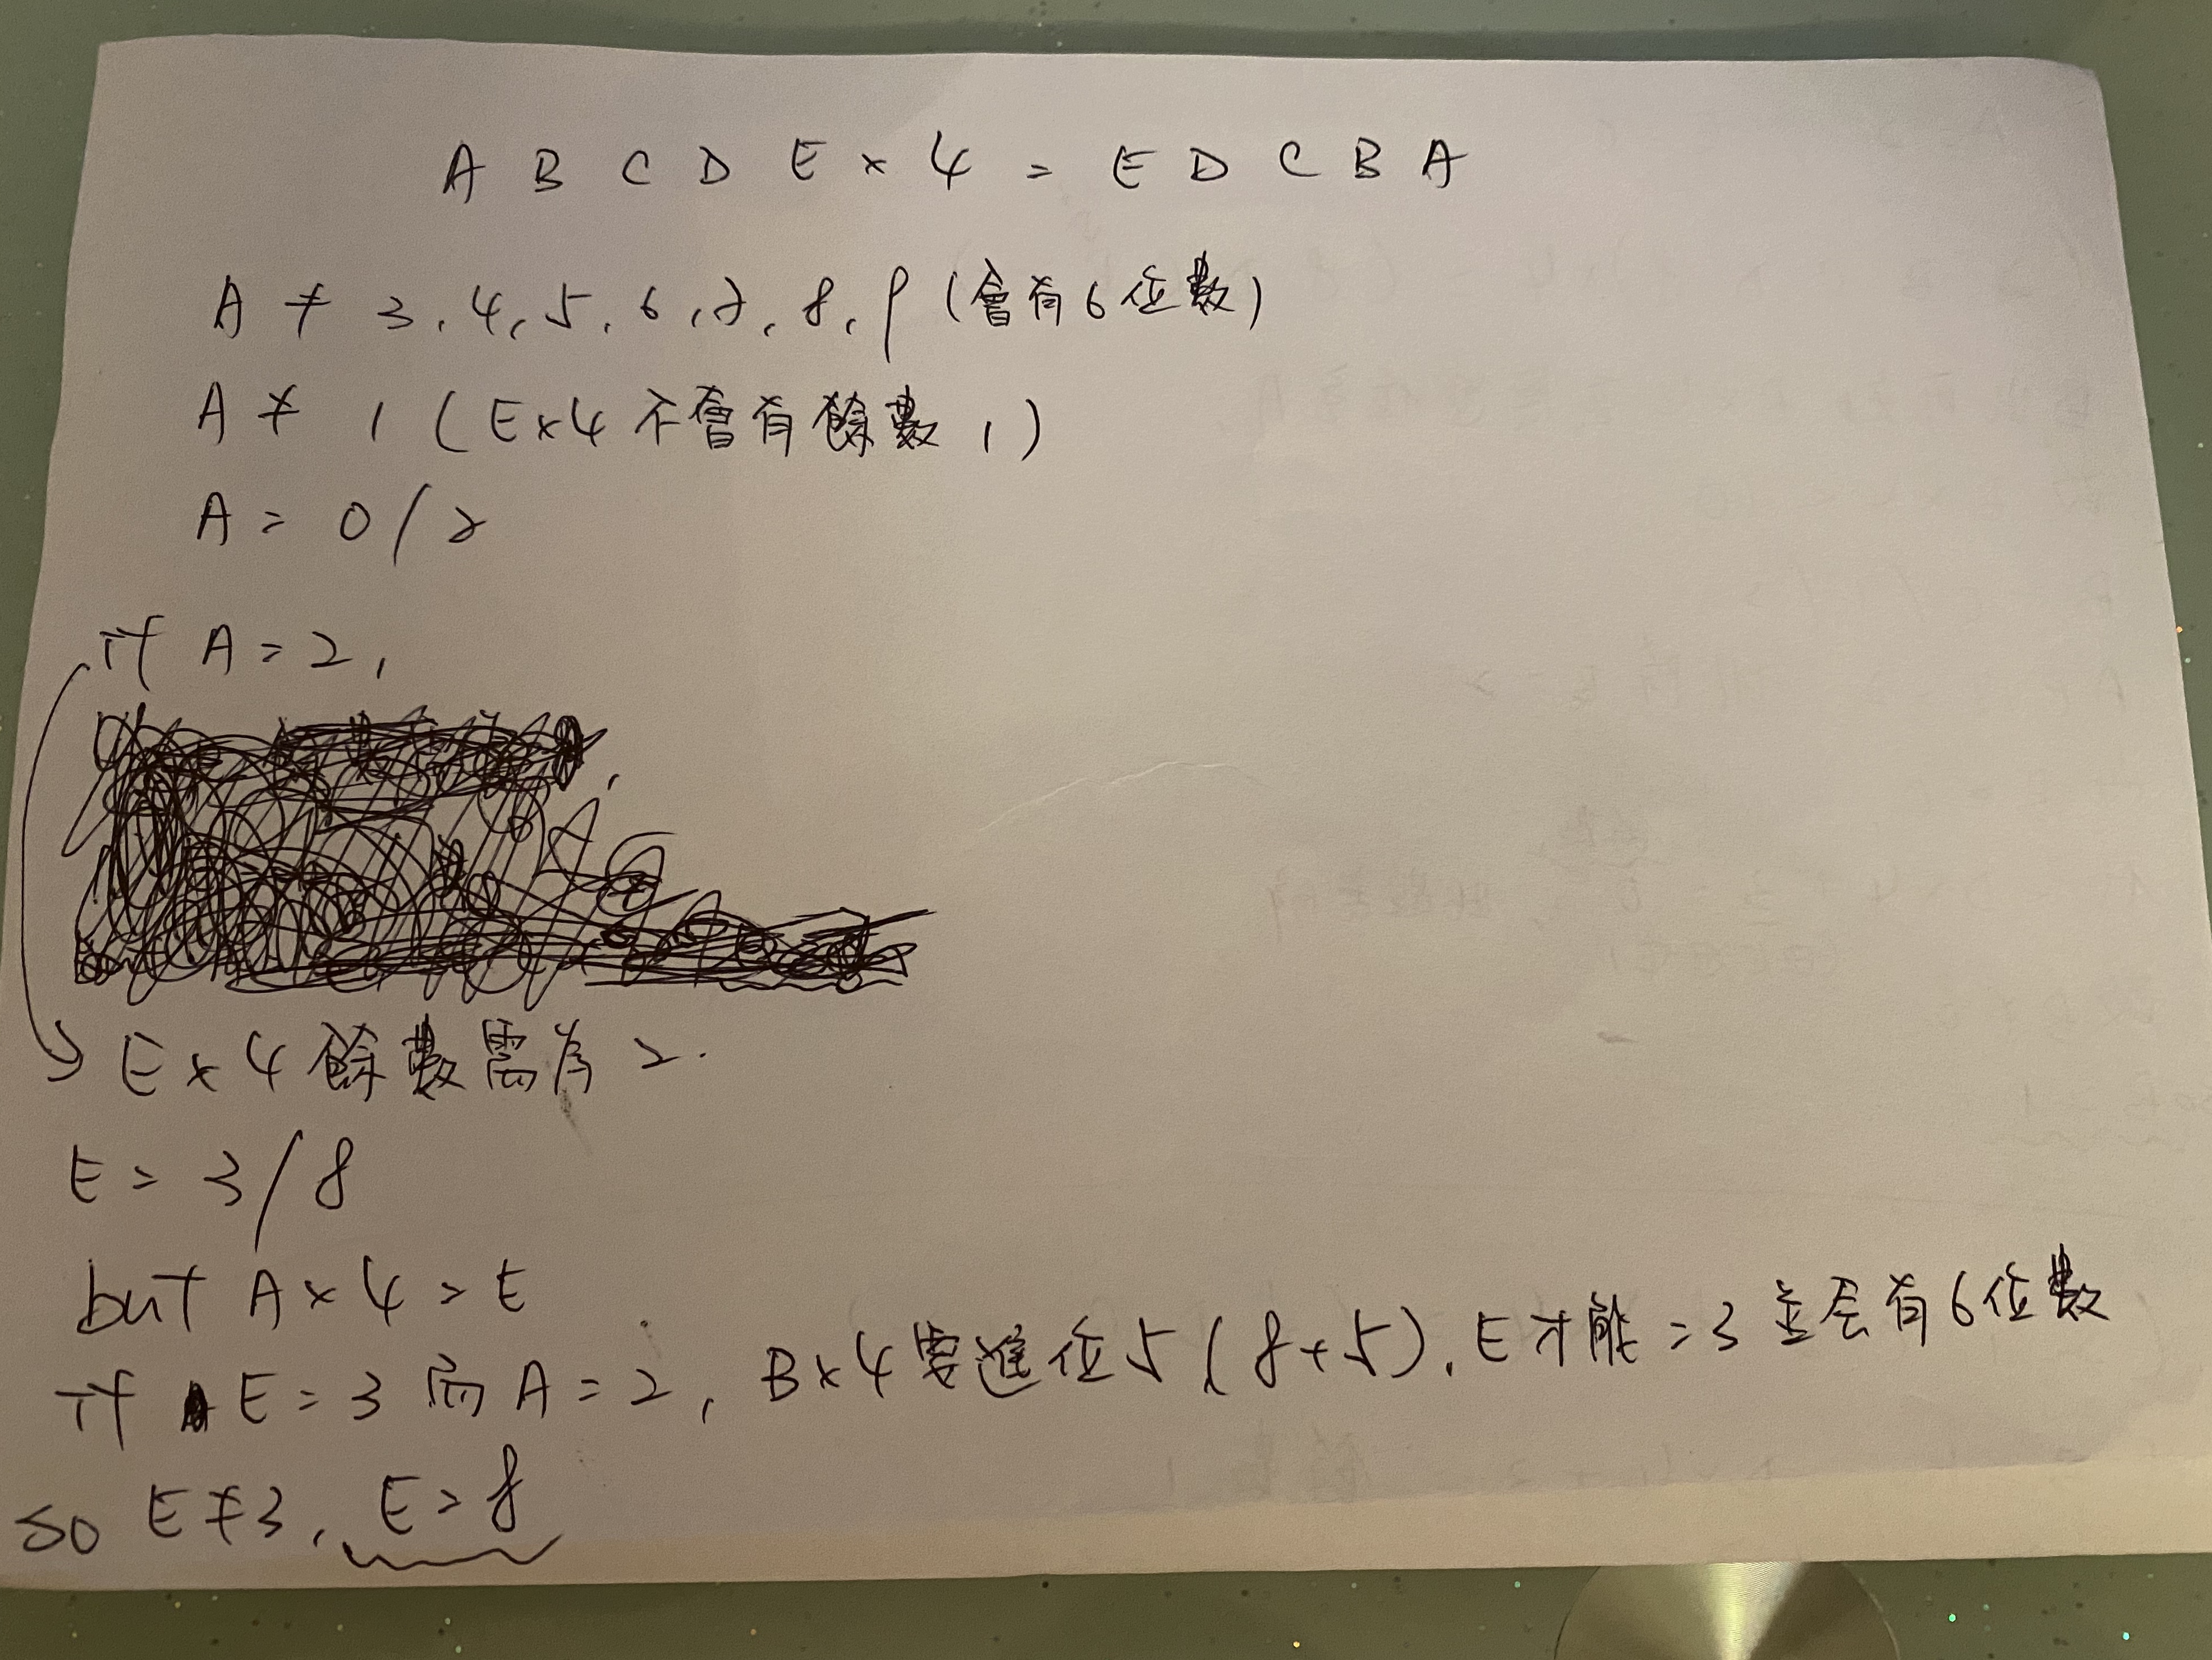 A B C D E × 4 = E D C B A
A ≠ 3, 4, 5, 6, 7, 8, 9 (會有6位數)
A ≠ 1 (E×4 不會有餘數 1)
A = 0/2
if A = 2,
E × 4 餘數需為 2.
E = 3/8
but A × 4 = E
if E = 3 而 A = 2, B×4 要進位 5 (8+5), E才能 = 3 並会有6位數
so E ≠ 3, E = 8